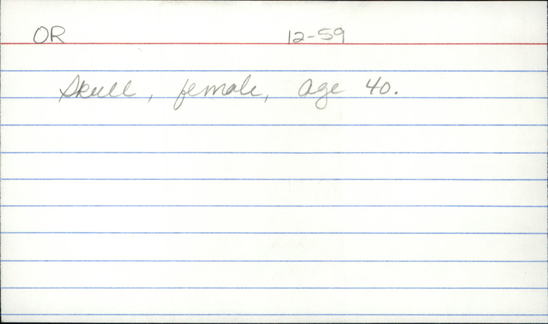 OR 12-59
Skull, female, age 40.